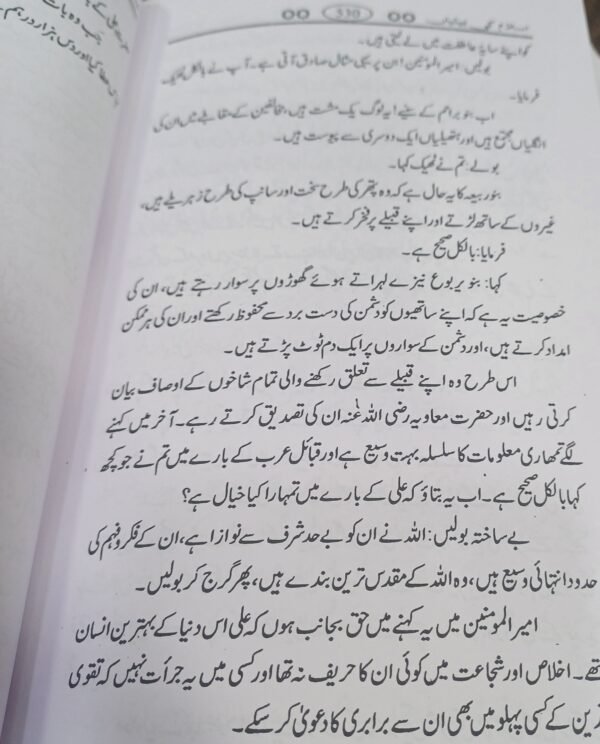 530
کو اپنے سایۂ عاطفت میں لے لیتی ہیں۔
بولیں: امیر المؤمنین ان پر یہی مثال صادق آتی ہے۔ آپ نے بالکل ٹھیک
فرمایا۔
اب بنو براجم کے سنیے! یہ لوگ یک مشت ہیں، مخالفین کے مقابلے میں ان کی
انگلیاں مجتمع ہیں اور ہتھیلیاں ایک دوسری سے پیوست ہیں۔
بولے: تم نے ٹھیک کہا۔
بنو ربیعہ کا یہ حال ہے کہ وہ پتھر کی طرح سخت اور سانپ کی طرح زہریلے ہیں،
غیروں کے ساتھ لڑتے اور اپنے قبیلے پر فخر کرتے ہیں۔
فرمایا: بالکل صحیح ہے۔
کہا: بنو یربوع نیزے لہراتے ہوئے گھوڑوں پر سوار رہتے ہیں، ان کی
خصوصیت یہ ہے کہ اپنے ساتھیوں کو دشمن کی دست برد سے محفوظ رکھتے اور ان کی ہر ممکن
امداد کرتے ہیں، اور دشمن کے سواروں پر ایک دم ٹوٹ پڑتے ہیں۔
اس طرح وہ اپنے قبیلے سے تعلق رکھنے والی تمام شاخوں کے اوصاف بیان
کرتی رہیں اور حضرت معاویہ رضی اللہ عنہ ان کی تصدیق کرتے رہے۔ آخر میں کہنے
لگے تمھاری معلومات کا سلسلہ بہت وسیع ہے اور قبائل عرب کے بارے میں تم نے جو کچھ
کہا بالکل صحیح ہے۔ اب یہ بتاؤ کہ علی کے بارے میں تمہارا کیا خیال ہے؟
بے ساختہ بولیں: اللہ نے ان کو بے حد شرف سے نوازا ہے، ان کے فکر و فہم کی
حدود انتہائی وسیع ہیں، وہ اللہ کے مقدس ترین بندے ہیں، پھر گرج کر بولیں۔
امیر المومنین میں یہ کہنے میں حق بجانب ہوں کہ علی اس دنیا کے بہترین انسان
تھے۔ اخلاص اور شجاعت میں کوئی ان کا حریف نہ تھا اور کسی میں یہ جرأت نہیں کہ تقوی
ترین کے کسی پہلو میں بھی ان سے برابری کا دعویٰ کر سکے۔